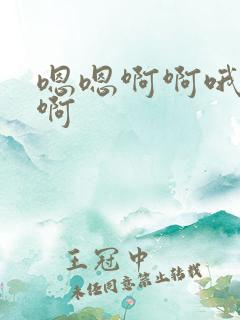 嗯嗯啊啊哦
啊
王冠中
未经同意禁止转载